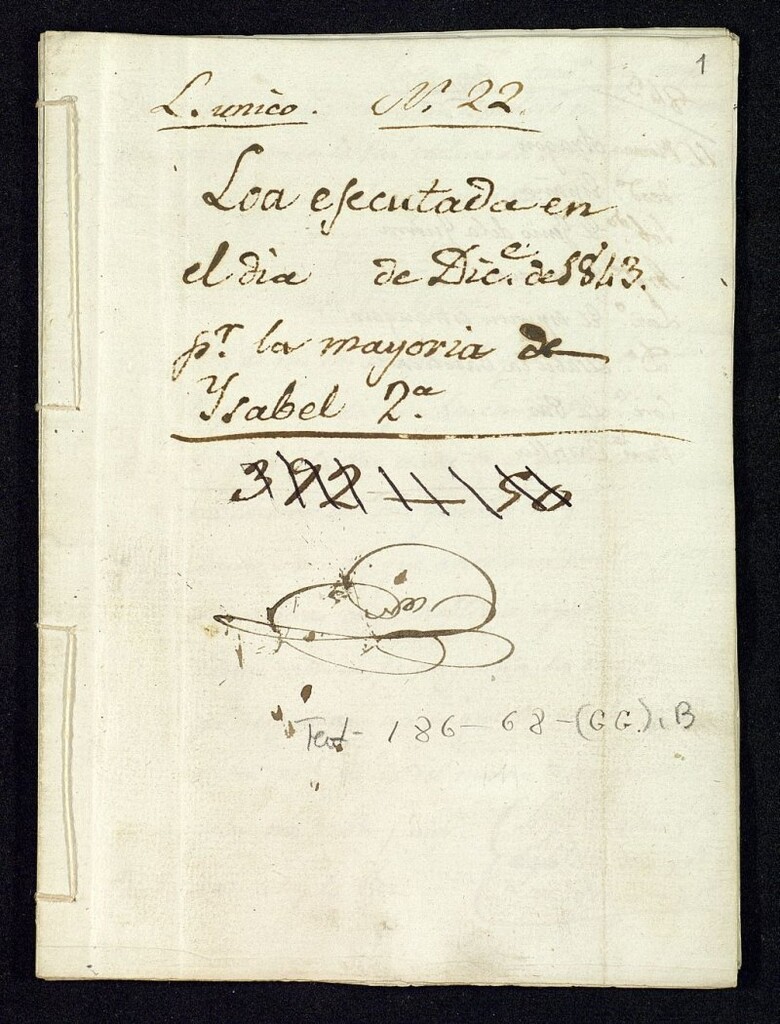 1
L. unico. N.º 22.
Loa ejecutada en
el dia de Dic.e de 1843.
pr. la mayoria de
Ysabel 2.a
Tea- 186-68-(GG), B